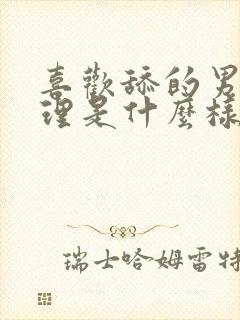 喜歡舔的男
理是什麼樣
瑞士哈姆雷特